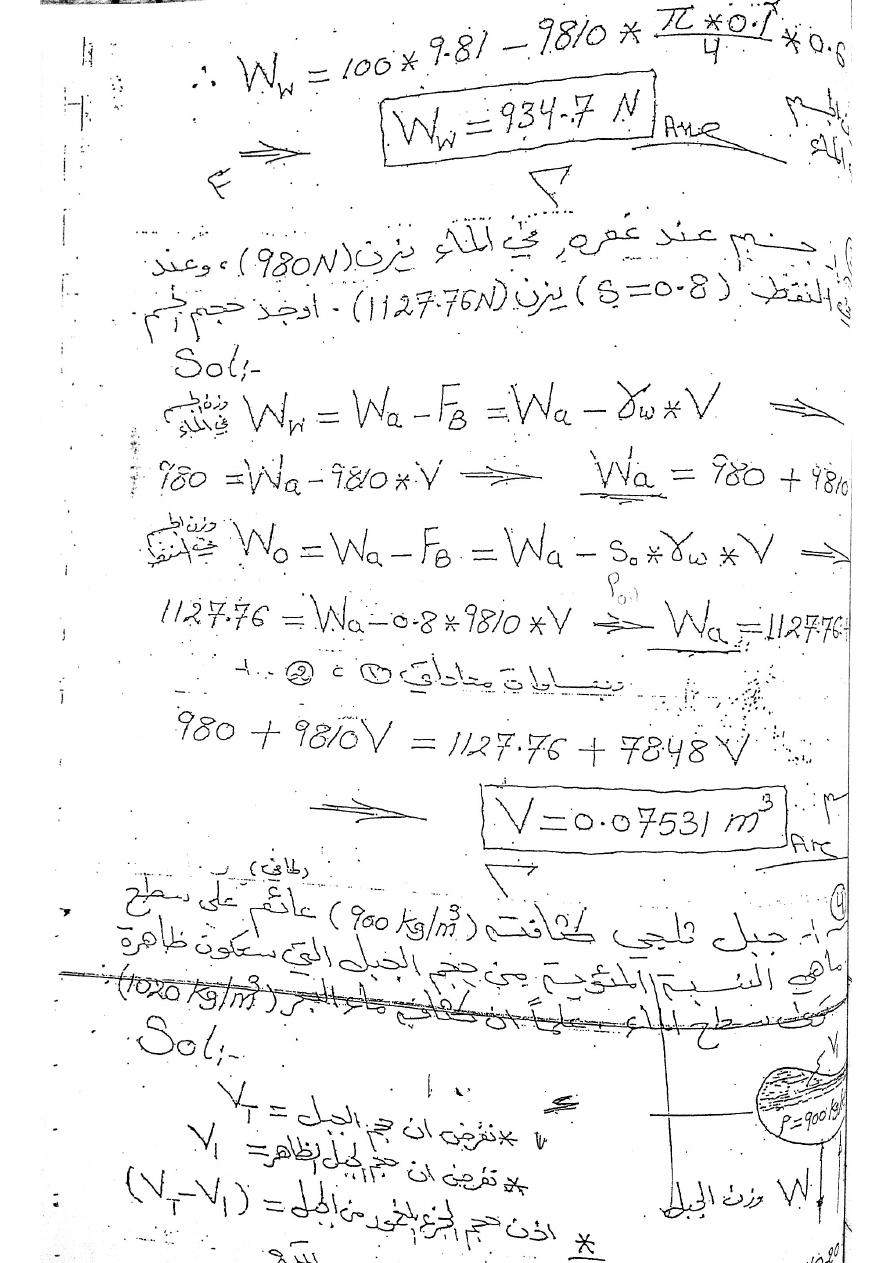 ∴ W_w = 100 * 9.81 − 9810 * (π * 0.1)/4 * 0.6
W_w = 934.7 N Ans
جسم عند غمره في الماء يزن (980N) ، وعند
النفط (S=0.8) يزن (1127.76N) . اوجد حجم الجسم
Sol:-
وزن الجسم في الماء W_w = W_a − F_B = W_a − γ_w * V ⇒
980 = W_a − 9810 * V ⇒ W_a = 980 + 9810
وزن الجسم في النفط W_o = W_a − F_B = W_a − S_o * γ_w * V ⇒
1127.76 = W_a − 0.8 * 9810 * V ⇒ W_a = 1127.76 +
980 + 9810V = 1127.76 + 7848V
⇒ V = 0.07531 m³
Ans
(طافي)
4
جبل ثلجي كثافته (900 kg/m³) عائم على سطح
ماهي النسبة المئوية من حجم الجبل التي ستكون ظاهرة
فوق سطح الماء ، علماً ان كثافة ماء البحر (1020 kg/m³)
Sol:-
* نفرض ان حجم الجبل = V_T
* نفرض ان حجم الجبل الظاهر = V_1
* اذن حجم الجزء المغمور من الجبل = (V_T − V_1)
V_1
ρ=900 kg/
W وزن الجبل